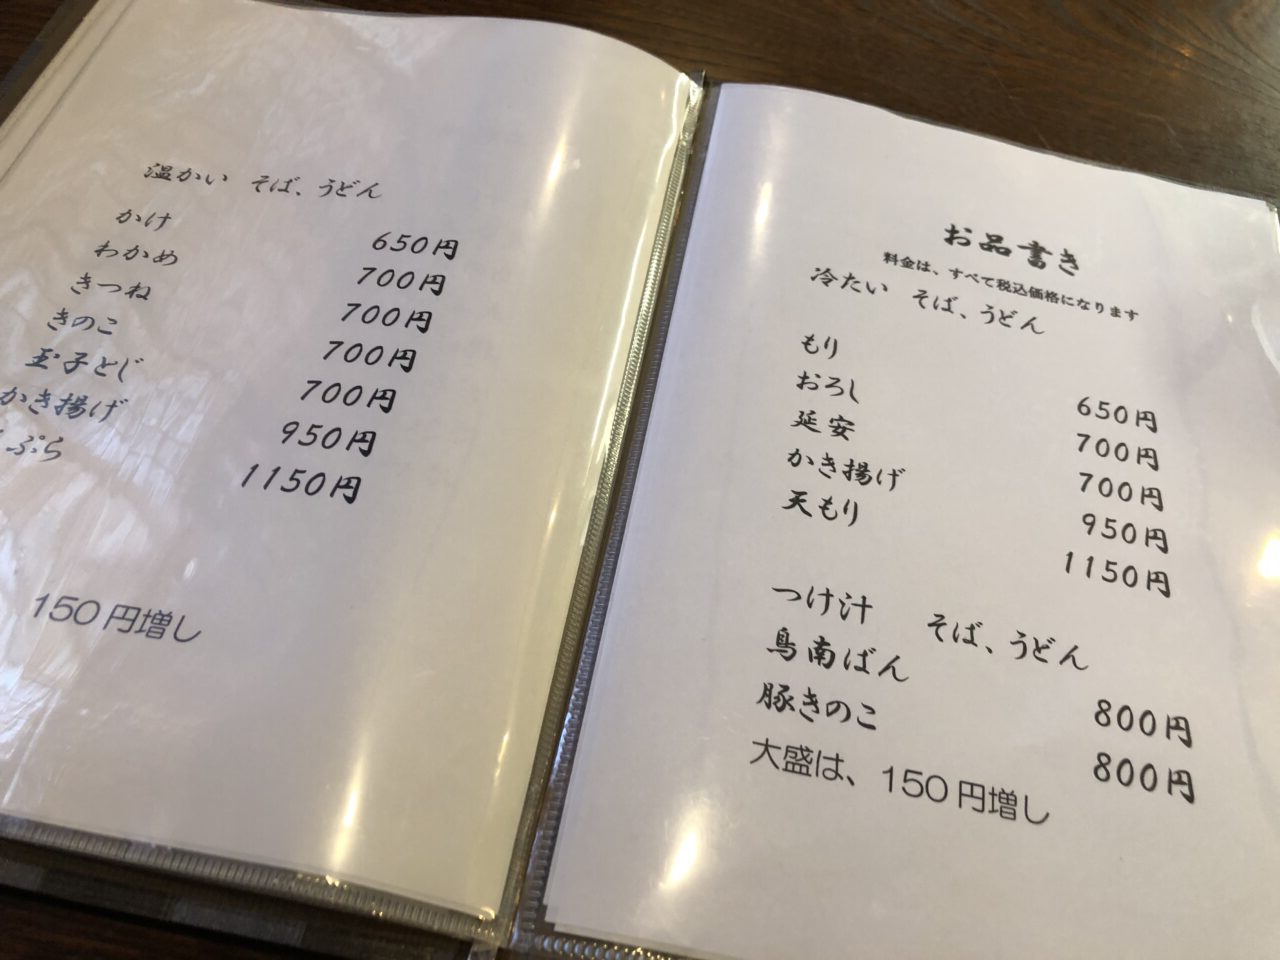 温かい そば、うどん
かけ 650円
わかめ 700円
きつね 700円
きのこ 700円
玉子とじ 700円
かき揚げ 950円
ぷら 1150円
150円増し
お品書き
料金は、すべて税込価格になります
冷たい そば、うどん
もり 650円
おろし 700円
延安 700円
かき揚げ 950円
天もり 1150円
つけ汁 そば、うどん
鳥南ばん 800円
豚きのこ 800円
大盛は、150円増し